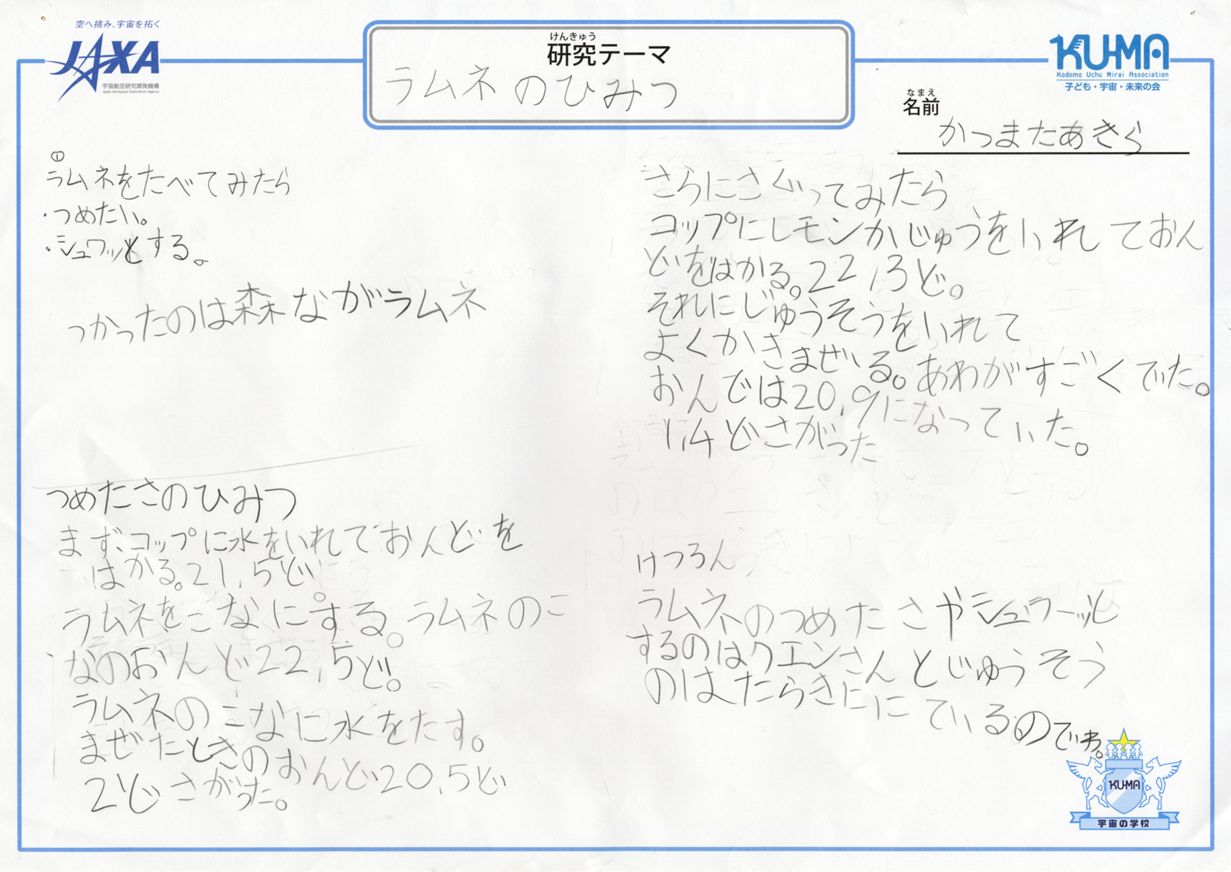 空へ挑み、宇宙を拓く
JAXA
宇宙航空研究開発機構
Japan Aerospace Exploration Agency
けんきゅう
研究テーマ
ラムネのひみつ
KU-MA
Kodomo Uchu Mirai Association
子ども・宇宙・未来の会
なまえ
名前
かつまたあきら
①
ラムネをたべてみたら
・つめたい。
・シュワッとする。
つかったのは森ながラムネ
つめたさのひみつ
まず、コップに水をいれておんどを
はかる。21,5ど。
ラムネをこなにする。ラムネのこ
なのおんど22,5ど。
ラムネのこなに水をたす。
まぜたときのおんど20,5ど
2どさがった。
さらにさぐってみたら
コップにレモンかじゅうをいれておん
どをはかる。22,3ど。
それにじゅうそうをいれて
よくかきまぜる。あわがすごくでた。
おんどは20,9になっていた。
1,4どさがった
けつろん
ラムネのつめたさやシュワーッと
するのはクエンさんとじゅうそう
のはたらきににているのでは。
KU-MA
宇宙の学校